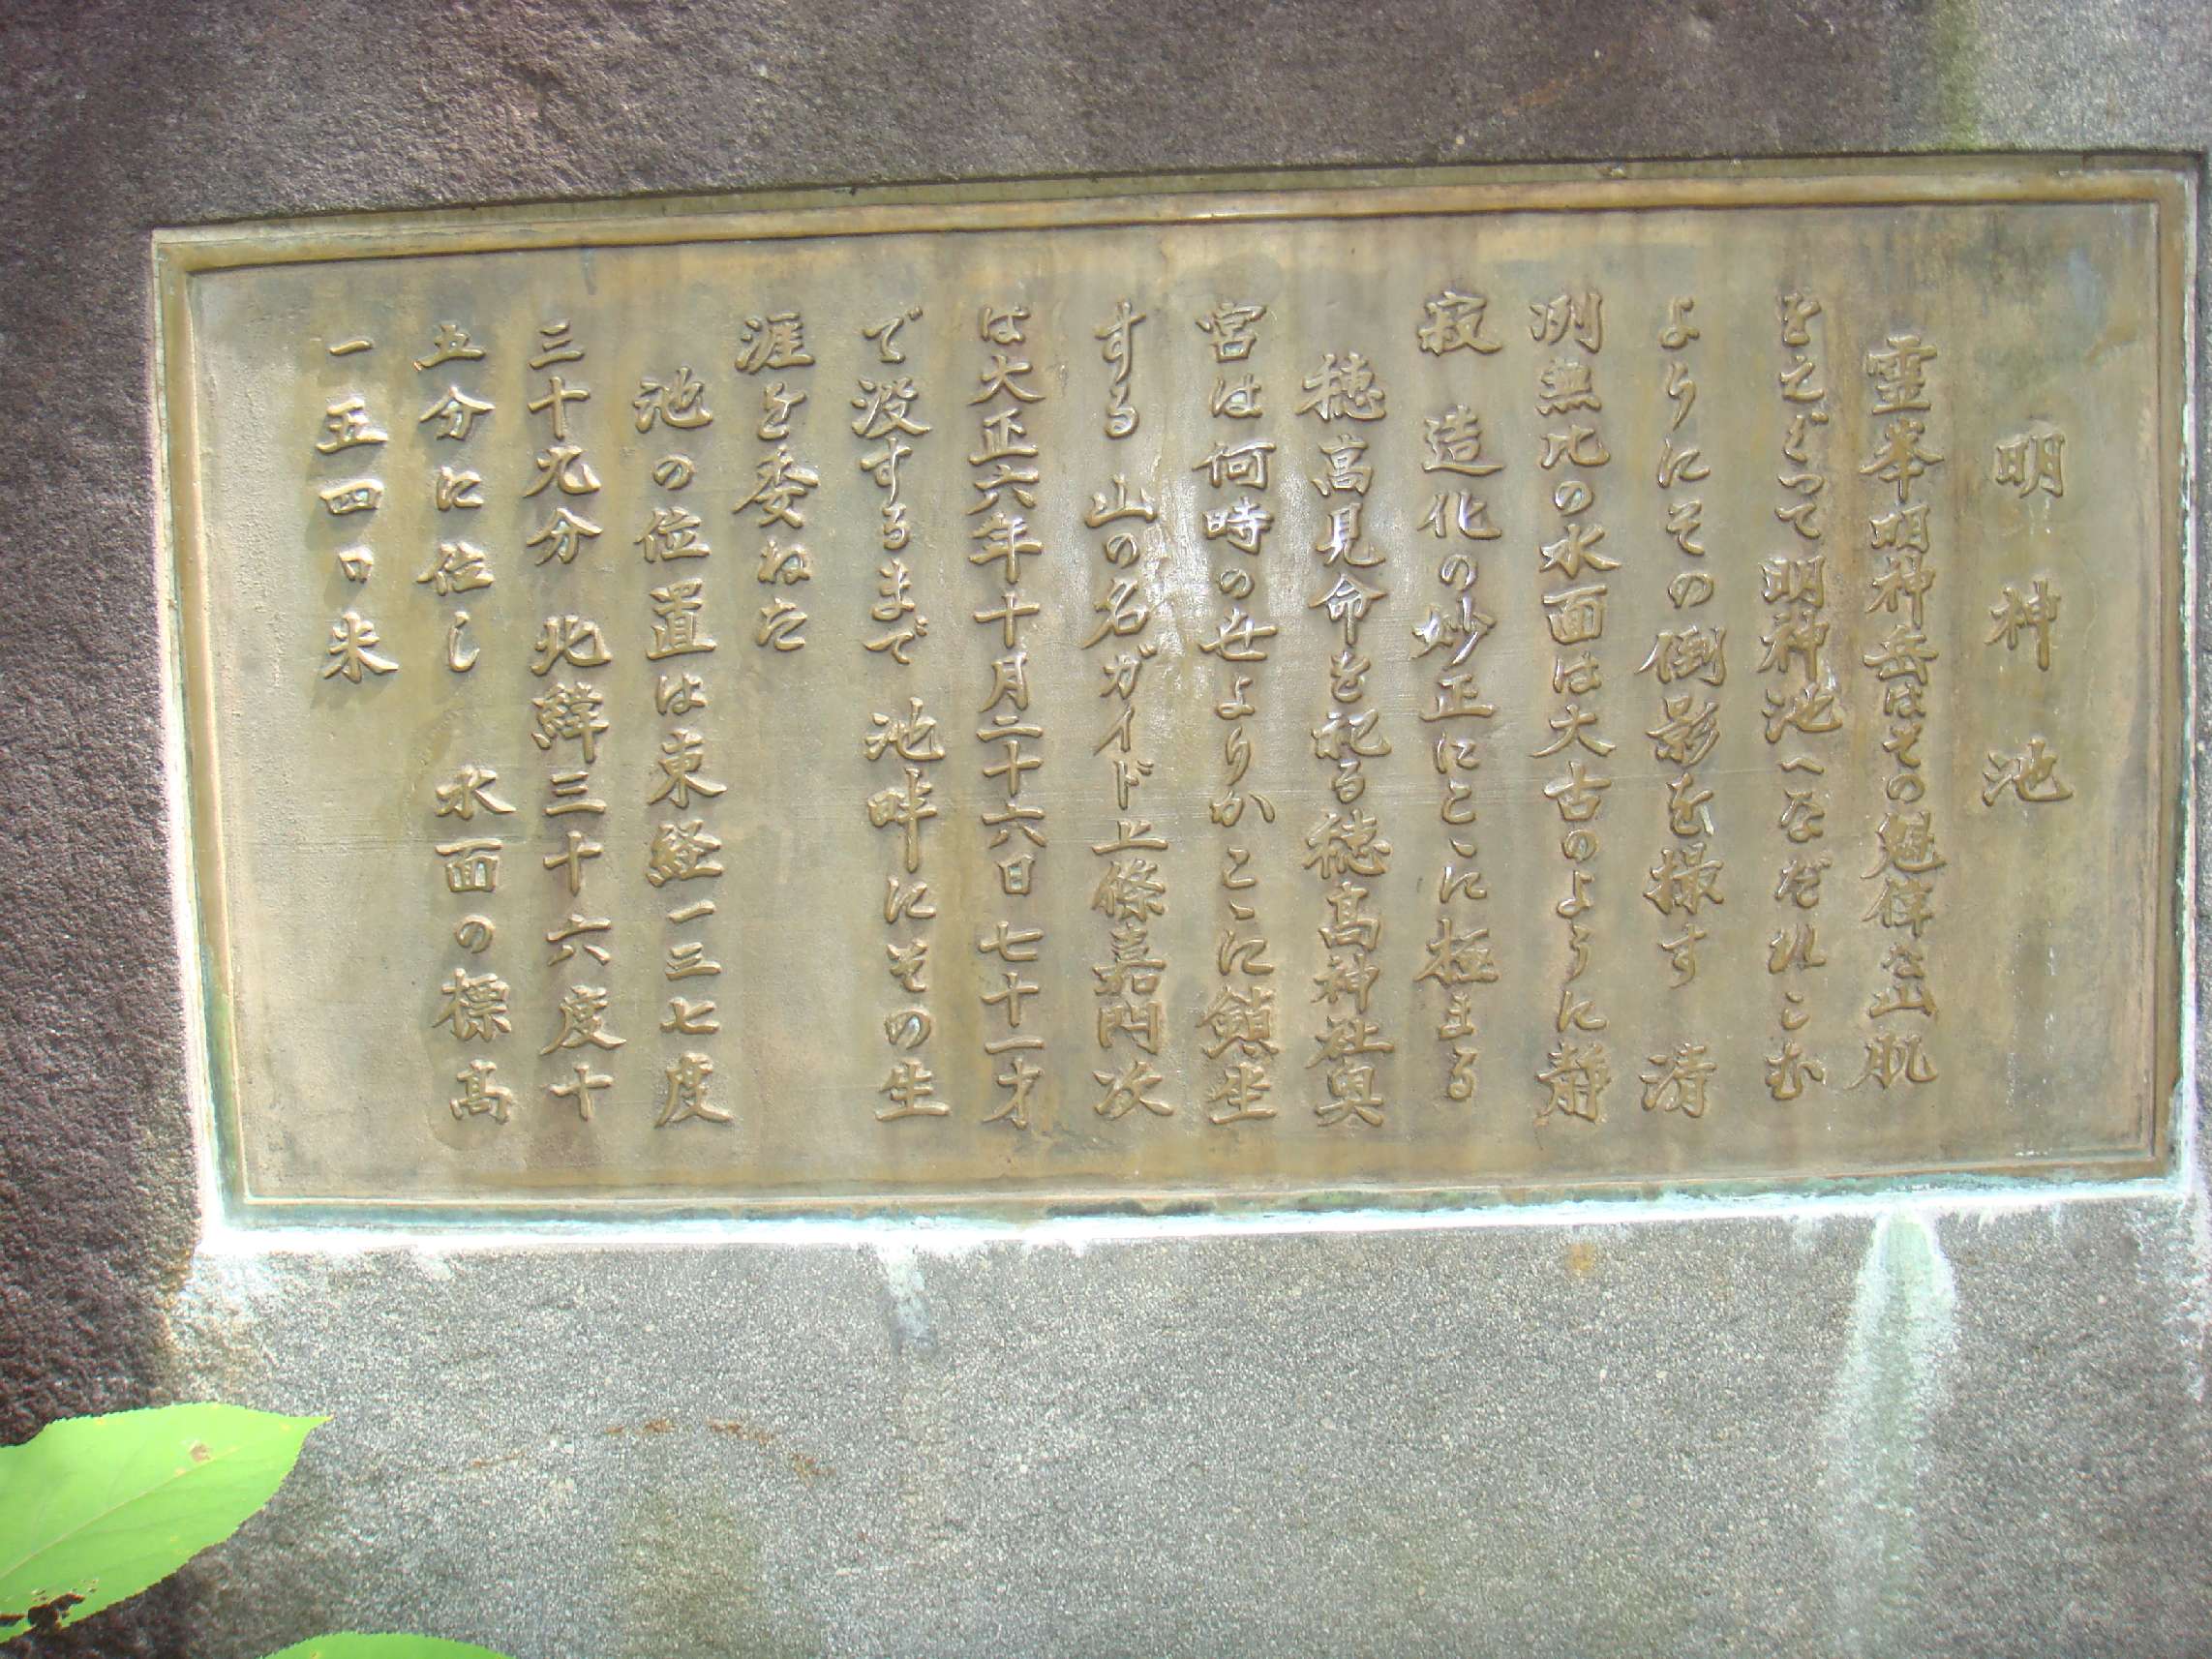 明神池
霊峯明神岳はその魁偉な山肌
をえぐって明神池へなだれこむ
ようにその倒影を撮す　清
冽無比の水面は太古のように静
寂　造化の妙正にこゝに極まる
穂高見命を祀る穂高神社奥
宮は何時の世よりかこゝに鎮坐
する　山の名ガイド上條嘉門次
は大正六年十月二十六日七十一才
で没するまで　池畔にその生
涯を委ねた
池の位置は東経一三七度
三十九分　北緯三十六度十
五分に位し　水面の標高
一五四〇米